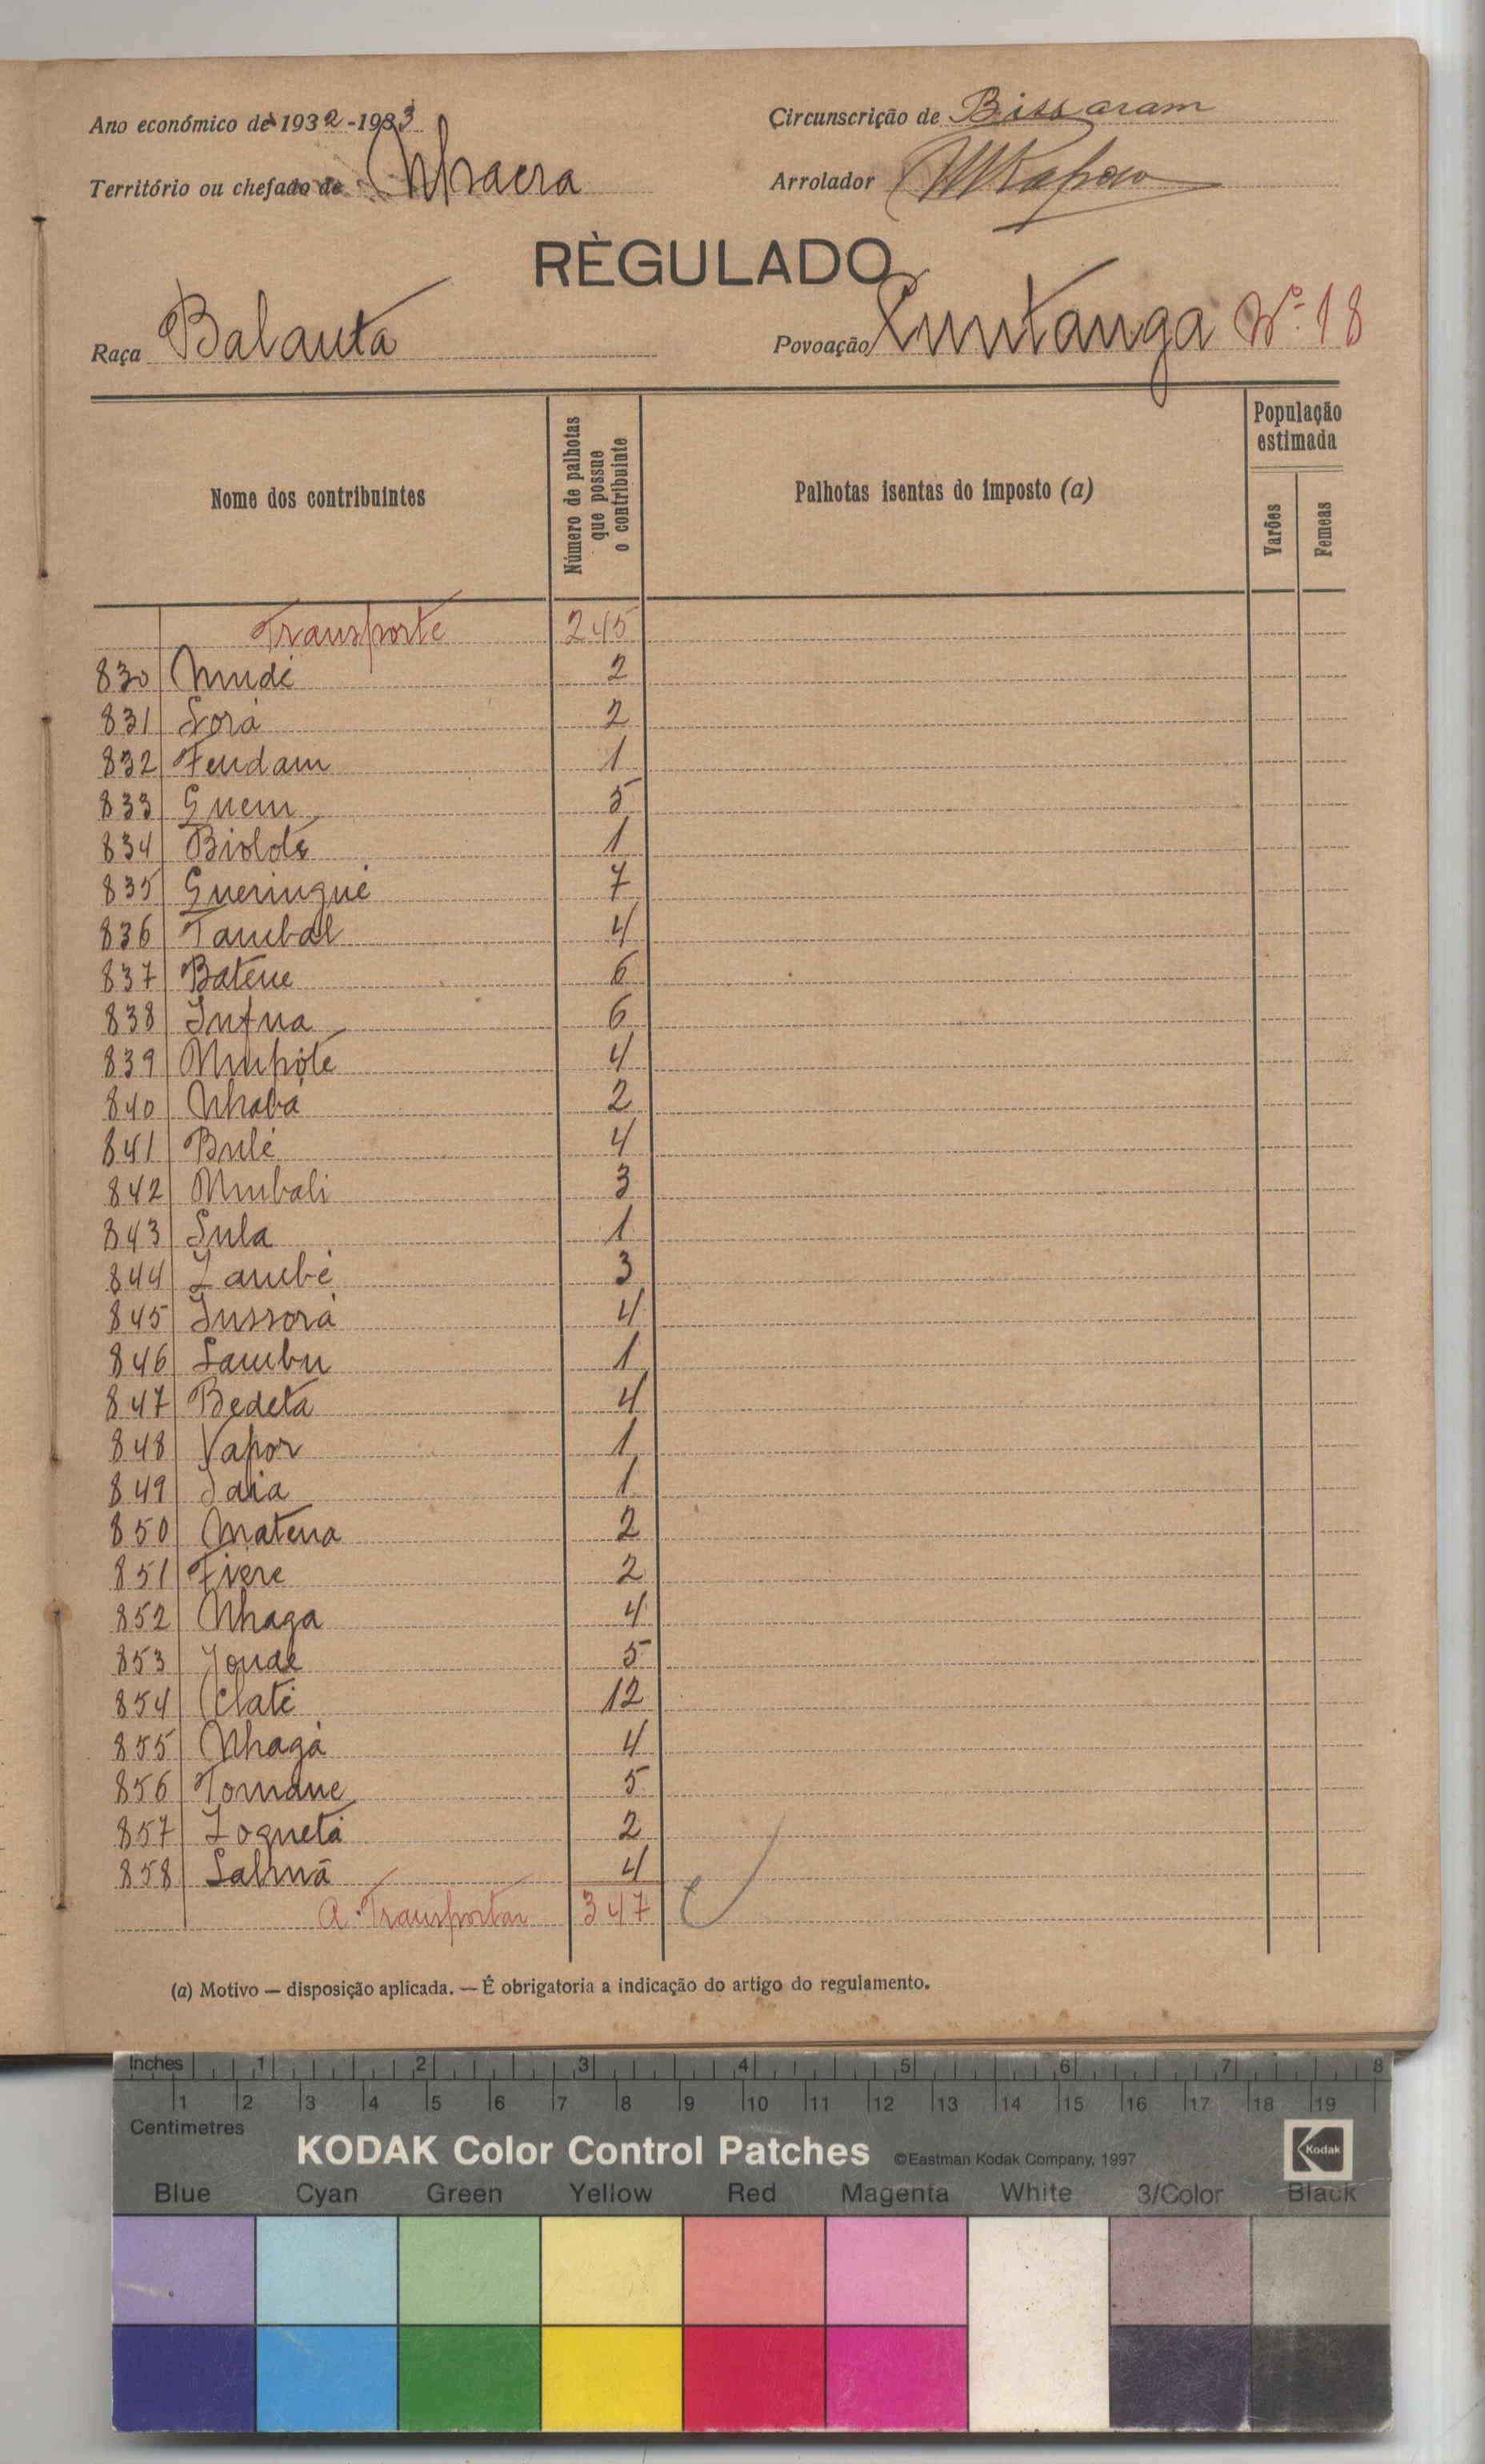 Ano económico de 1932-1933
Circunscrição de Bissaram
Território ou chefado de Nhacra
Arrolador
RÈGULADO
Raça Balanta
Povoação Cuntanga Nº 18
Nome dos contribuintes
Número de palhotas que possue o contribuinte
Palhotas isentas do imposto (a)
População estimada
Varões
Femeas
Transporte 245
830 Mudé 2
831 Sorá 2
832 Fendam 1
833 Guem 5
834 Biolote 1
835 Gueringué 7
836 Tambal 4
837 Batene 6
838 Infna 6
839 Mupóte 4
840 Nhaba 2
841 Bulé 4
842 Mubali 3
843 Sula 1
844 Zambé 3
845 Jussorá 4
846 Sambu 1
847 Bedeta 4
848 Vapor 1
849 Jaia 1
850 Matena 2
851 Fiere 2
852 Nhaga 4
853 Jonde 5
854 Clate 12
855 Nhagá 4
856 Tomane 5
857 Zoquetá 2
858 Salmã 4
A Transportar 347
(a) Motivo — disposição aplicada. — É obrigatoria a indicação do artigo do regulamento.
Inches 1 2 3 4 5 6 7 8
1 2 3 4 5 6 7 8 9 10 11 12 13 14 15 16 17 18 19
Centimetres
KODAK Color Control Patches ©Eastman Kodak Company, 1997 Kodak
Blue Cyan Green Yellow Red Magenta White 3/Color Black